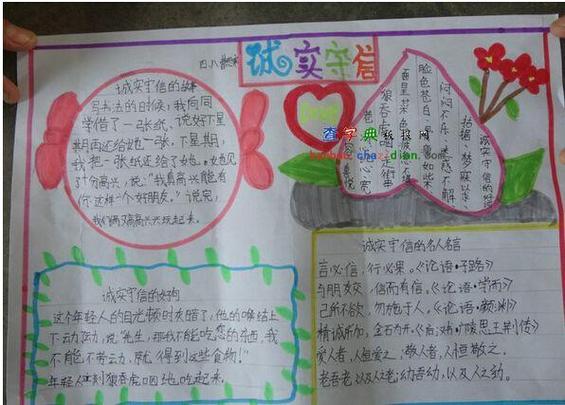 四八
诚实守信
诚实守信的故事
写书法的时候,我向同
学借了一张纸、说好下星
期再还给她一张,下星期,
我把一张纸还给了她。她见
了十分高兴,说:"我真高兴能有
你这样一个好朋友。"说完,
我们俩又高高兴兴玩起来。
查字典手抄报网
诚实守信的
闷闷不乐 迷惑不解
脸色苍白 如此
狼吞虎咽
诚实守信的好狗
这个年轻人的目光顿时灰暗了,他的喉结上
下动了动,说:"先生,那我不能吃您的东西,我
不能不劳动,就得到这些食物!"
年轻人立刻狼吞虎咽地吃起来。
诚实守信的名人名言
言必信,行必果。《论语·子路》
与朋友交,信而有信。《论语·学而》
己所不欲,勿施于人。《论语·颜渊》
精诚所加,金石为开。《后汉书·广陵思王荆传》
爱人者,人恒爱之;敬人者,人恒敬之。
老吾老以及人之老;幼吾幼,以及人之幼。